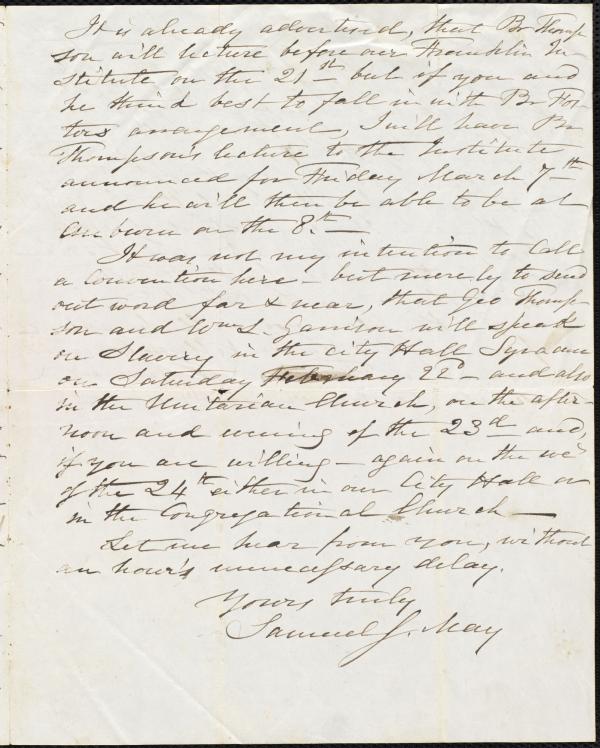 It is already advertised, that Br Thomp-
son will lecture before our Franklin In-
stitute on the 21st but if you and
he think best to fall in with Br Fos-
ters arrangement, I will have Br
Thompson's lecture to the Institute
announced for Friday March 7th
and he will then be able to be at
Auburn on the 8th. —
It was not my intention to call
a convention here – but merely to send
out word far & near, that Geo Thomp-
son and Wm L. Garrison will speak
on Slavery in the City Hall Syracuse
on Saturday February 22d – and also
in the Unitarian Church, on the after-
noon and evening of the 23d and,
if you are willing – again on the
of the 24th either in our City Hall or
in the Congregational Church —
Let me hear from you, without
an hour's unnecessary delay.
Yours truly
Samuel J. May